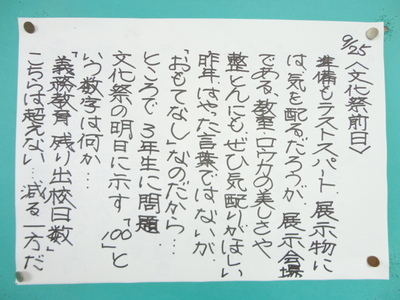 9/25〈文化祭前日〉
準備もラストスパート 展示物に
は気を配るだろうが、展示会場
である、教室・ロウカの美しさや
整とんにも、ぜひ気配りがほしい
昨年はやった言葉ではないが、
「おもてなし」なのだから…
ところで 3年生に問題
文化祭の明日に示す「100!」と
いう数字は何か…
『義務教育 残り出校日数』
こちらは超えない…減る一方だ